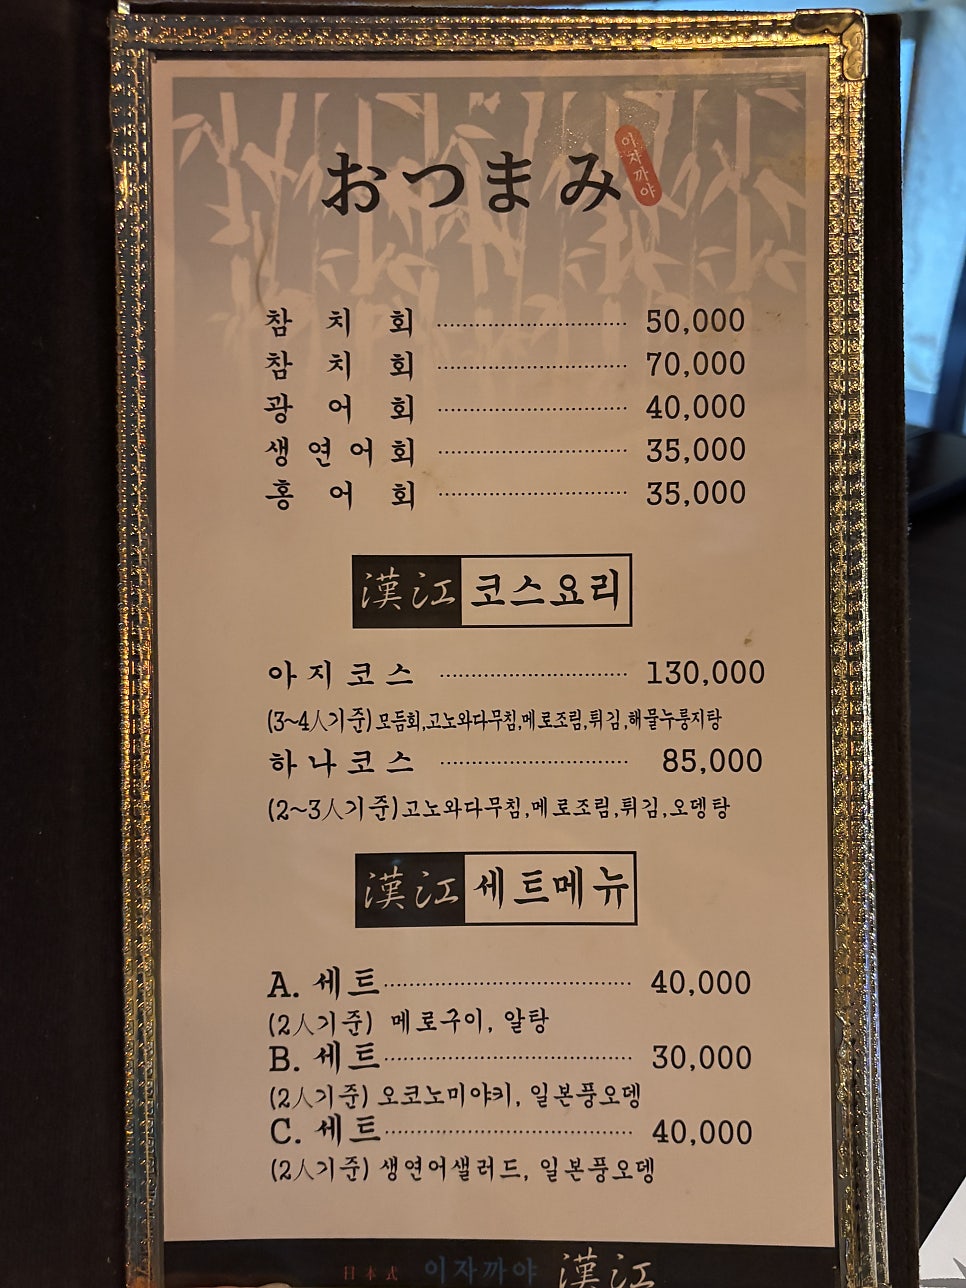 おつまみ 이자까야
참 치 회 ························ 50,000
참 치 회 ························ 70,000
광 어 회 ························ 40,000
생 연 어 회 ························ 35,000
홍 어 회 ························ 35,000
漢江 코스요리
아 지 코 스 ························ 130,000
(3~4人기준) 모듬회,고노와다무침,메로조림,튀김,해물누룽지탕
하 나 코 스 ························ 85,000
(2~3人기준)고노와다무침,메로조림,튀김,오뎅탕
漢江 세트메뉴
A. 세트································ 40,000
(2人기준) 메로구이, 알탕
B. 세트································ 30,000
(2人기준) 오코노미야키, 일본풍오뎅
C. 세트································ 40,000
(2人기준) 생연어샐러드, 일본풍오뎅
日本式 이자까야 漢江